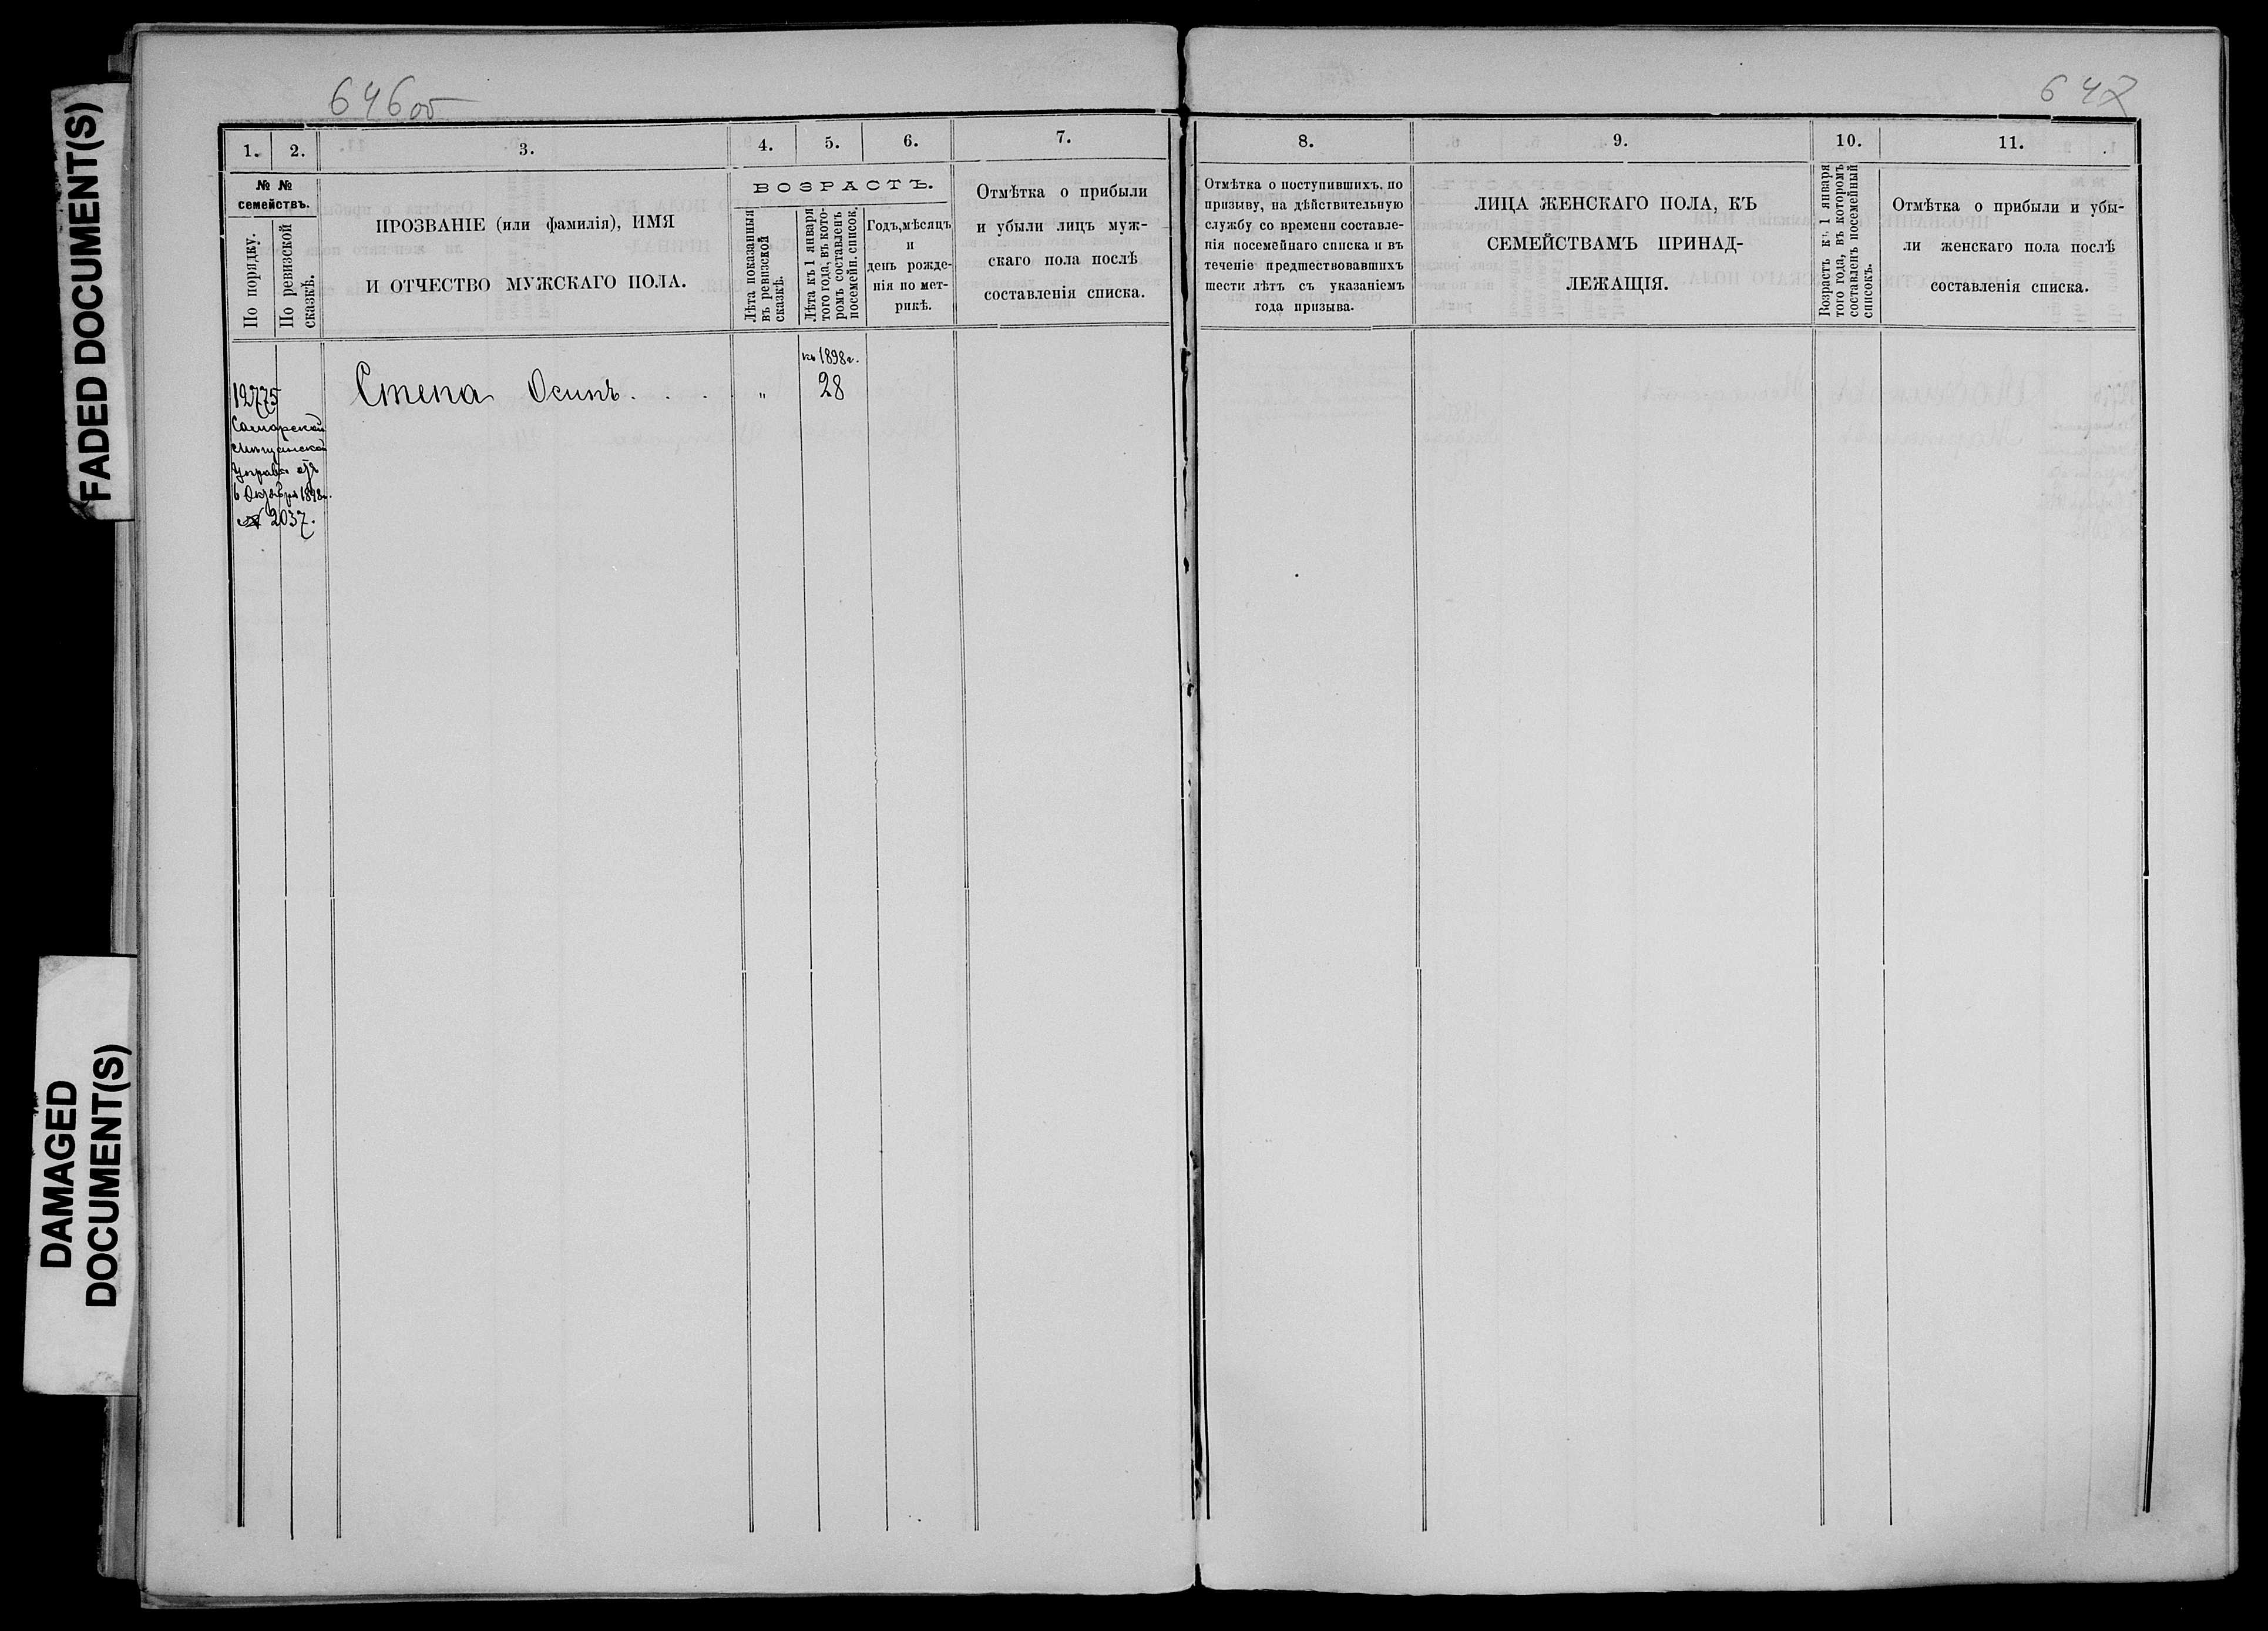 FADED DOCUMENT(S)
DAMAGED
DOCUMENT(S)
646об
1. 2. 3. 4. 5. 6. 7.
№ №
семействъ.
По порядку.
По ревизской
сказкѣ.
ПРОЗВАНІЕ (или фамилія), ИМЯ
И ОТЧЕСТВО МУЖСКАГО ПОЛА.
ВОЗРАСТЪ.
Лѣта показанныя
въ ревизской
сказкѣ.
Лѣта къ 1 января
того года, въ кото-
ромъ составленъ
посемейн. список.
Годъ, мѣсяцъ
и
день рожде-
нія по мет-
рикѣ.
Отмѣтка о прибыли
и убыли лицъ муж-
скаго пола послѣ
составленія списка.
къ 1898 г.
12775 Степа Осипъ . . . . " 28
Самарской
Мѣщанской
Управы отъ
6 Октября 1898 г.
№ 2037.
647
8. 9. 10. 11.
Отмѣтка о поступившихъ, по
призыву, на дѣйствительную
службу со времени составле-
нія посемейнаго списка и въ
теченіе предшествовавшихъ
шести лѣтъ съ указаніемъ
года призыва.
ЛИЦА ЖЕНСКАГО ПОЛА, КЪ
СЕМЕЙСТВАМЪ ПРИНАД-
ЛЕЖАЩІЯ.
Возрастъ къ 1 января
того года, въ которомъ
составленъ посемейный
списокъ.
Отмѣтка о прибыли и убы-
ли женскаго пола послѣ
составленія списка.